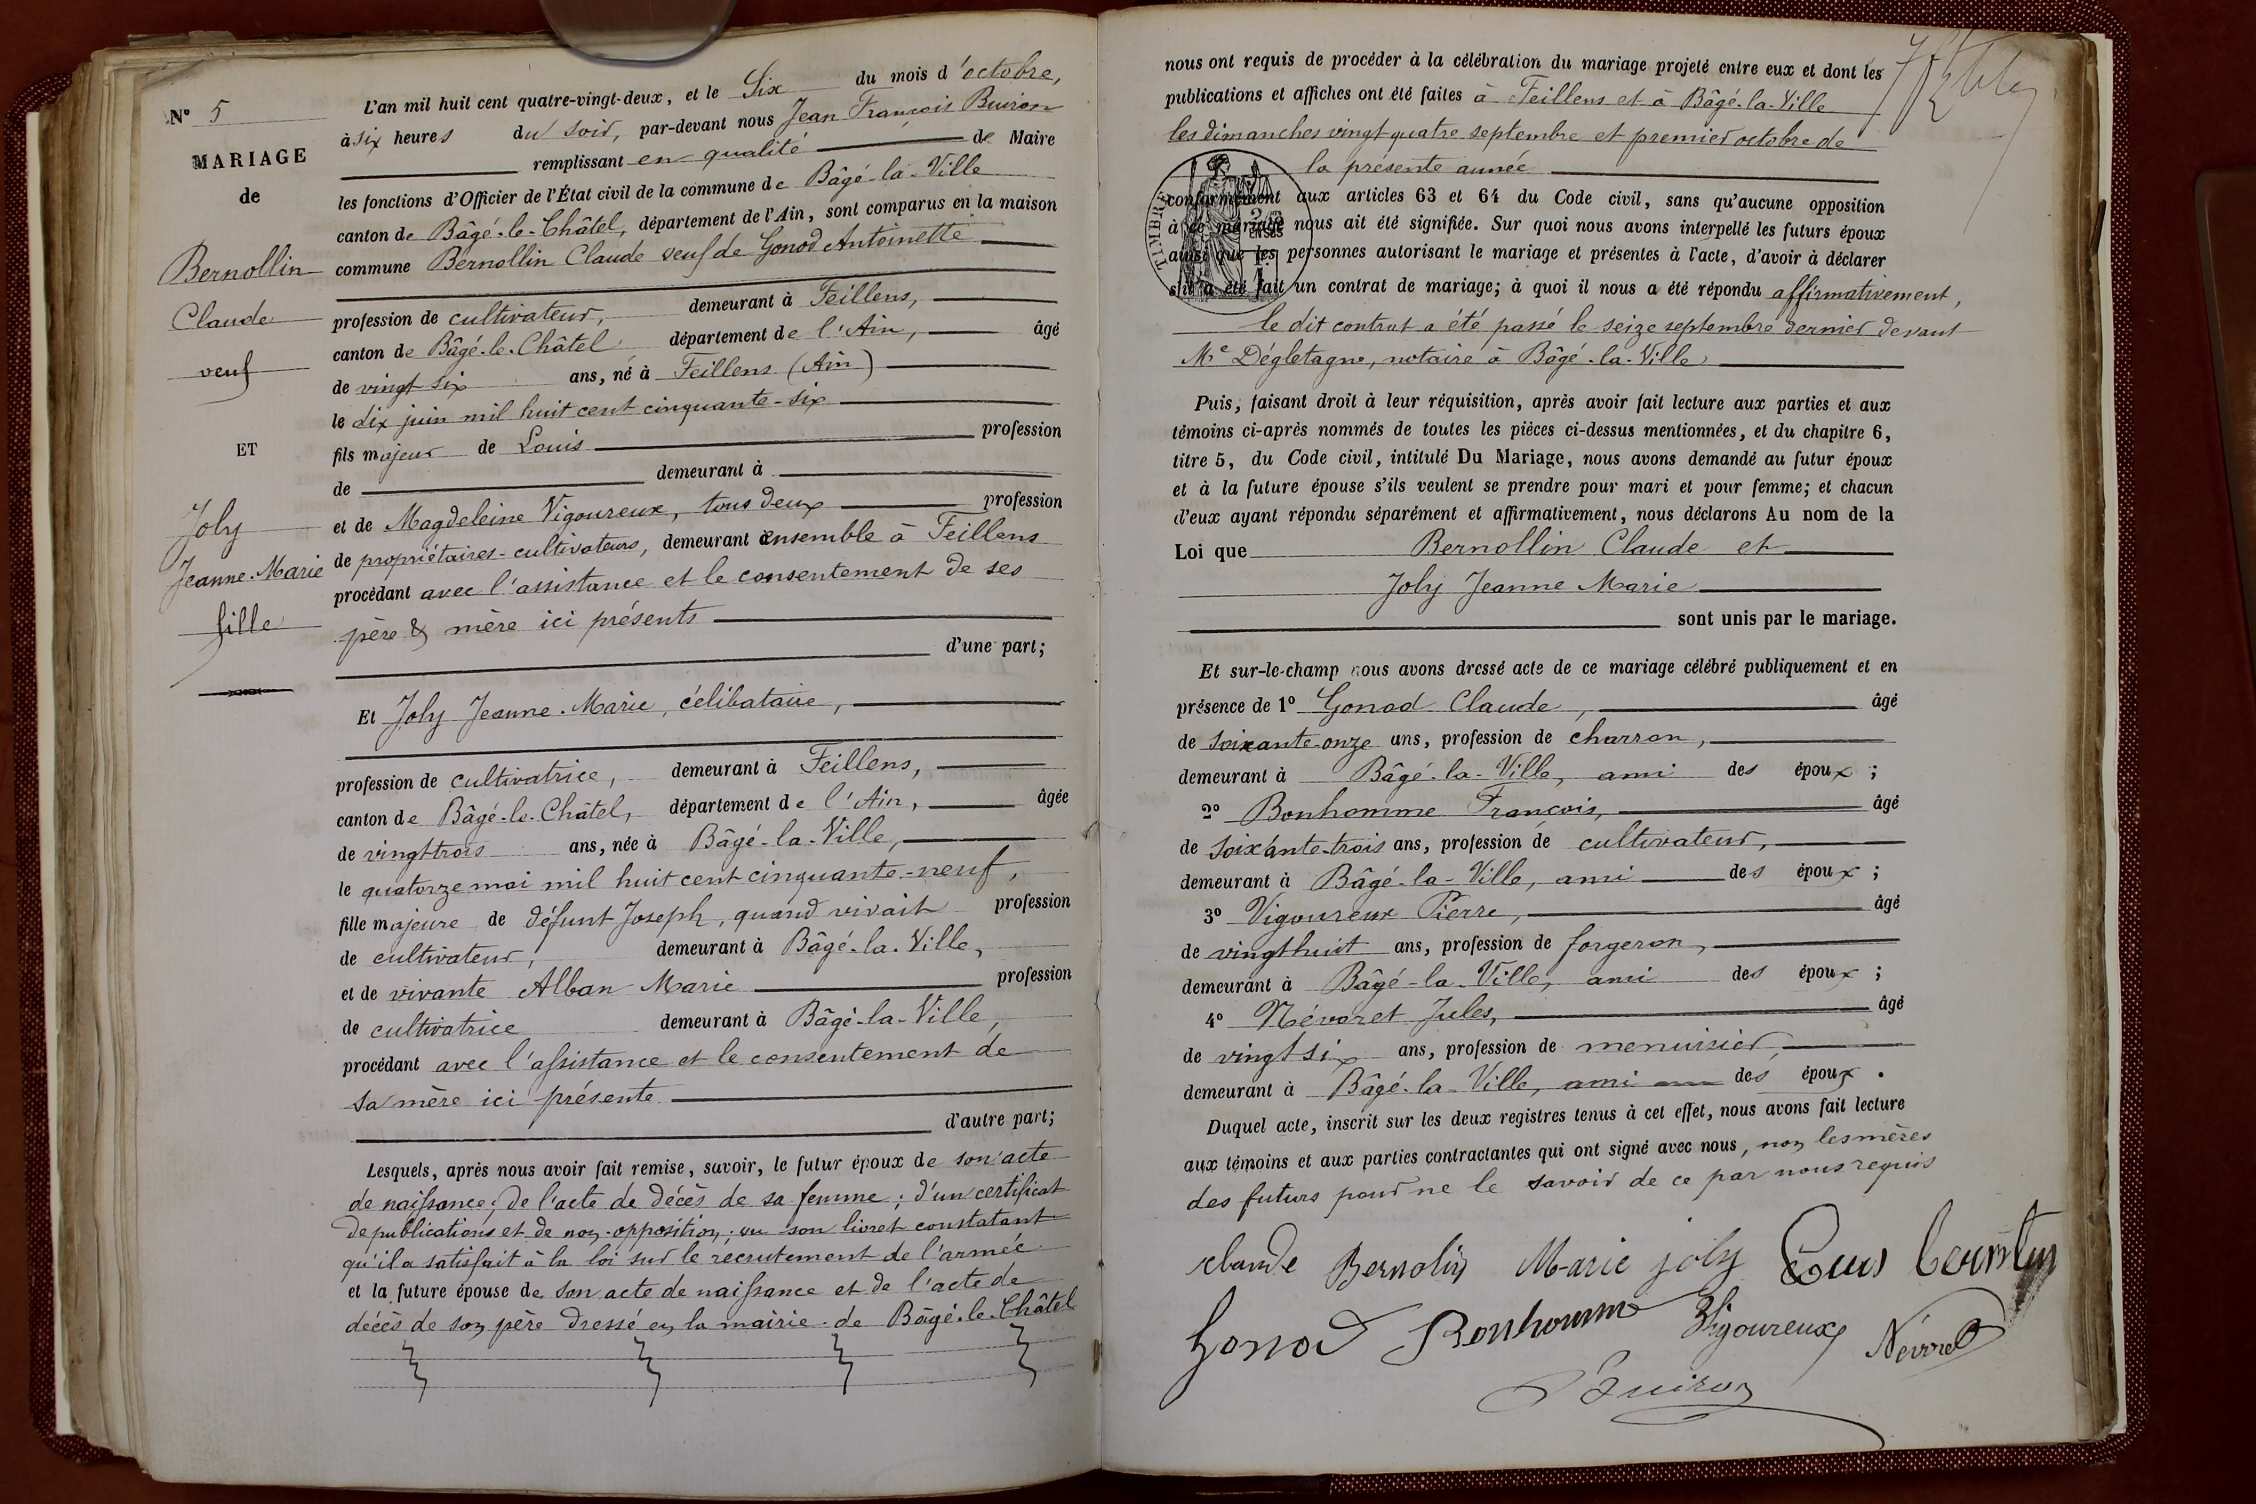 N° 5
MARIAGE
de
Bernollin
Claude
veuf
ET
Joly
Jeanne-Marie
fille
L'an mil huit cent quatre-vingt-deux, et le Six du mois d'octobre,
à six heures du soir, par-devant nous Jean François Buiron
remplissant en qualité de Maire
les fonctions d'Officier de l'État civil de la commune de Bâgé-la-Ville
canton de Bâgé-le-Châtel, département de l'Ain, sont comparus en la maison
commune Bernollin Claude veuf de Gonod Antoinette
profession de cultivateur, demeurant à Feillens,
canton de Bâgé-le-Châtel département de l'Ain, âgé
de vingt six ans, né à Feillens (Ain)
le dix juin mil huit cent cinquante-six
fils majeur de Louis profession
de demeurant à
et de Magdeleine Vigoureux, tous deux profession
de propriétaires-cultivateurs, demeurant ensemble à Feillens
procédant avec l'assistance et le consentement de ses
père & mère ici présents
d'une part;
Et Joly Jeanne-Marie, célibataire,
profession de cultivatrice, demeurant à Feillens,
canton de Bâgé-le-Châtel, département de l'Ain, âgée
de vingt trois ans, née à Bâgé-la-Ville,
le quatorze mai mil huit cent cinquante-neuf,
fille majeure de défunt Joseph, quand vivait profession
de cultivateur, demeurant à Bâgé-la-Ville,
et de vivante Alban Marie profession
de cultivatrice demeurant à Bâgé-la-Ville,
procédant avec l'assistance et le consentement de
sa mère ici présente
d'autre part;
Lesquels, après nous avoir fait remise, savoir, le futur époux de son acte
de naissance; de l'acte de décès de sa femme; d'un certificat
de publications et de non-opposition; vu son livret constatant
qu'il a satisfait à la loi sur le recrutement de l'armée
et la future épouse de son acte de naissance et de l'acte de
décès de son père dressé en la mairie de Bâgé-le-Châtel
nous ont requis de procéder à la célébration du mariage projeté entre eux et dont les
publications et affiches ont été faites à Feillens et à Bâgé-la-Ville
les dimanches vingt quatre septembre et premier octobre de
la présente année
conformément aux articles 63 et 64 du Code civil, sans qu'aucune opposition
à ce mariage nous ait été signifiée. Sur quoi nous avons interpellé les futurs époux
ainsi que les personnes autorisant le mariage et présentes à l'acte, d'avoir à déclarer
s'il a été fait un contrat de mariage; à quoi il nous a été répondu affirmativement,
le dit contrat a été passé le seize septembre dernier devant
Me Dégletagne, notaire à Bâgé-la-Ville
TIMBRE
CENT.S
Puis, faisant droit à leur réquisition, après avoir fait lecture aux parties et aux
témoins ci-après nommés de toutes les pièces ci-dessus mentionnées, et du chapitre 6,
titre 5, du Code civil, intitulé Du Mariage, nous avons demandé au futur époux
et à la future épouse s'ils veulent se prendre pour mari et pour femme; et chacun
d'eux ayant répondu séparément et affirmativement, nous déclarons Au nom de la
Loi que Bernollin Claude et
Joly Jeanne Marie
sont unis par le mariage.
Et sur-le-champ nous avons dressé acte de ce mariage célébré publiquement et en
présence de 1° Gonod Claude, âgé
de soixante-onze ans, profession de charron,
demeurant à Bâgé-la-Ville, ami des époux;
2° Bonhomme François, âgé
de soixante-trois ans, profession de cultivateur,
demeurant à Bâgé-la-Ville, ami des époux;
3° Vigoureux Pierre, âgé
de vingt huit ans, profession de forgeron,
demeurant à Bâgé-la-Ville, ami des époux;
4° Névoret Jules, âgé
de vingt six ans, profession de menuisier,
demeurant à Bâgé-la-Ville, ami des époux.
Duquel acte, inscrit sur les deux registres tenus à cet effet, nous avons fait lecture
aux témoins et aux parties contractantes qui ont signé avec nous, non les mères
des futurs pour ne le savoir de ce par nous requis
claude Bernolin Marie joly Louis
Gonod Bonhomme Vigoureux Névoret
Buiron